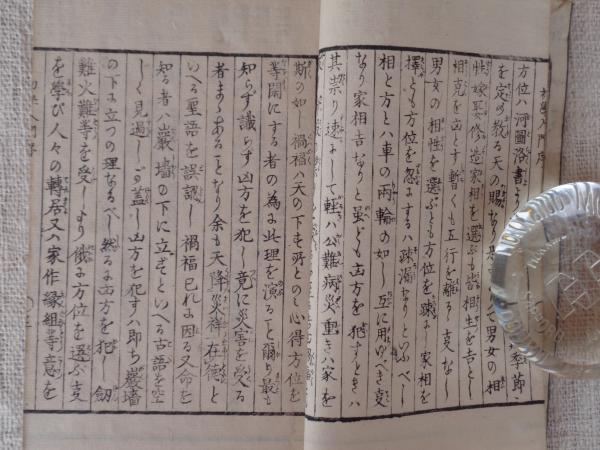 方位ハ河圖洛書
を定め教る天の賜なり
性嫁娶修造家相を選ぶも皆相生を吉とし
相克を凶とす暫くも五行を離るゝ事なし
男女の相性を選ぶとも方位を疎に家相を
擇とも方位を忽にするハ疎漏なりといふべし
相と方とハ車の兩輪の如し互に用ゆべき事
なり家相吉なりと虽ども凶方を犯すときハ
其祟り速にして軽ハ公難病災重きハ家を
斯の如し禍福ハ天の下す所とのミ心得方位を
等閑にする者の為に此理を演ること爾り最も
知らず識らず凶方を犯し竟に災害を受る
者まゝあることなり余も天降災祥在德と
いへる聖語を誤認し禍福己れに因る又命を
知る者ハ巌墻の下に立ずといへる古語を空
しく見過し
盖し凶方を犯すハ即ち巌墻
の下に立つの理なるべし然るに凶方を犯し劔
難火難等を受しより俄に方位を選ぶ事
を學び人々の轉居又ハ家作縁組等意を